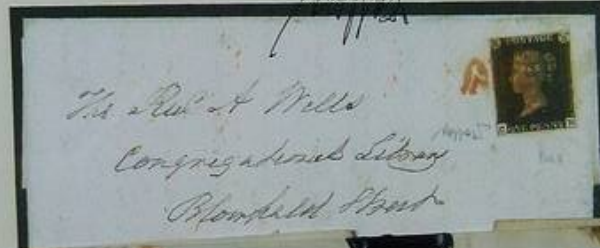 POSTAGE
ONE PENNY
The Rev A Wells
Congregational Library
Blomfield Street